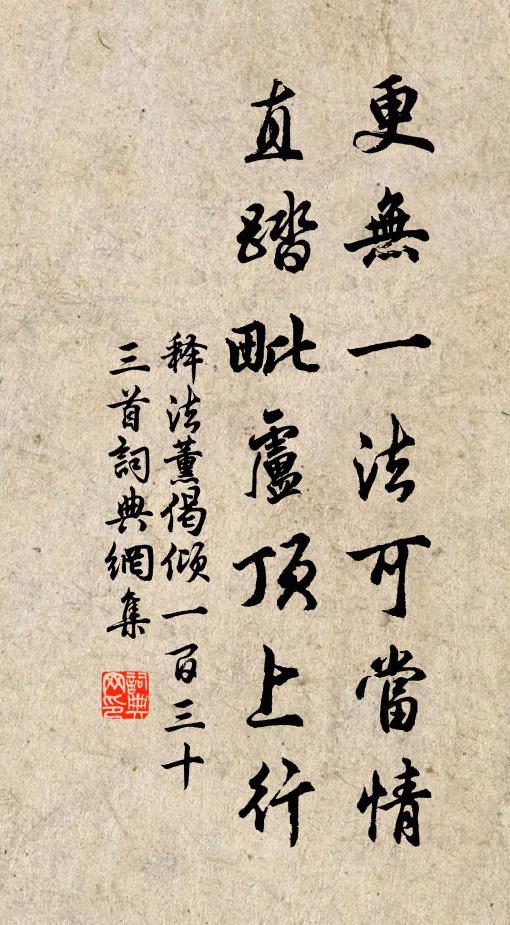 更無一法可當情
直踏毗盧頂上行
释法薰偈傾一百三十
三首詞典網集
詞典网印